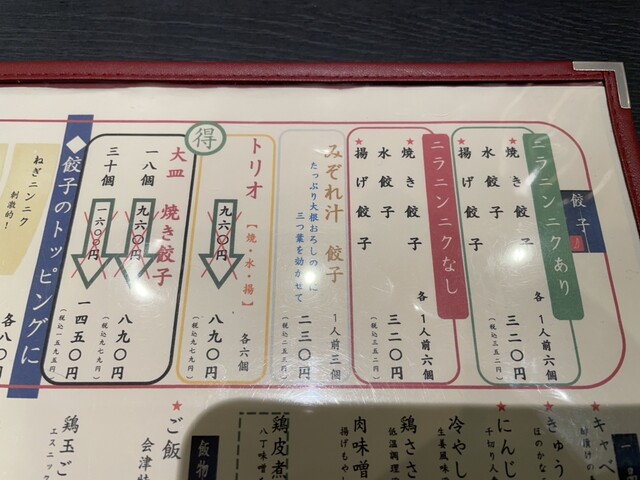 餃子
ニラニンニクあり
★焼き餃子
水餃子
★揚げ餃子
各1人前六個
三二〇円
(税込三五二円)
ニラニンニクなし
★焼き餃子
水餃子
★揚げ餃子
各1人前六個
三二〇円
(税込三五二円)
みぞれ汁 餃子
たっぷり大根おろしの
三つ葉を効かせて
1人前三個
二三〇円
(税込二五三円)
得
トリオ
【焼・水・揚】
各六個
九六〇円
八九〇円
(税込九七九円)
大皿 焼き餃子
一八個
九六〇円
八九〇円
(税込九七九円)
三十個
一六〇〇円
一四五〇円
(税込一五九五円)
◆餃子のトッピングに
ねぎニンニク
刺激的!
各八〇円
一
★キャベ
★きゅう
ほのかな
★にんじ
千切り人
冷やし
生姜風味
鶏ささ
低温調理
肉味噌
揚げもやし
鶏皮煮
八丁味噌
飯物
★ご飯
会津
鶏玉ご
エスニック